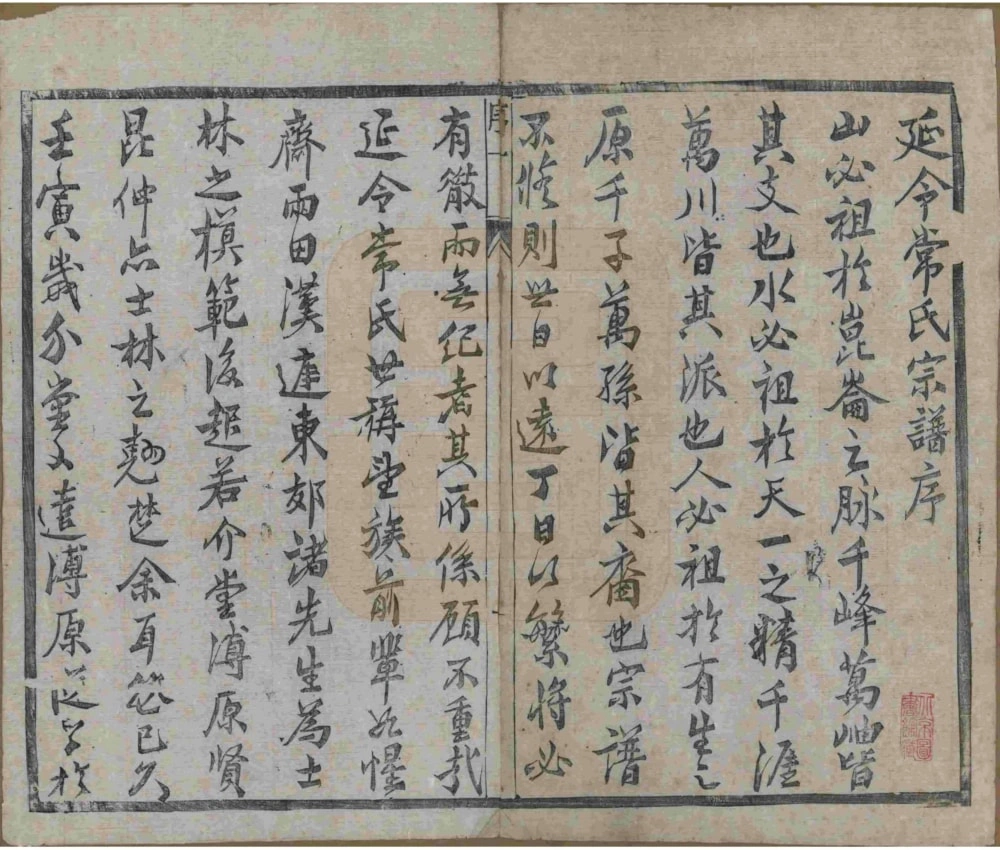 延令常氏宗譜序
山必祖於崑崙之脉千峰萬岫皆
其支也水必祖於天一之精千涯
萬川皆其派也人必祖於有生之
原千子萬孫皆其裔也宗譜
不修則世日以遠丁日以繁將必
序一
有散而無紀者其所係顧不重哉
延令常氏世稱望族前輩如惺
齋雨田漢連東郊諸先生為士
林之模範後起若介堂溥原賢
昆仲亦士林之翹楚余耳熟已久
壬寅歲介堂文達溥原從學於